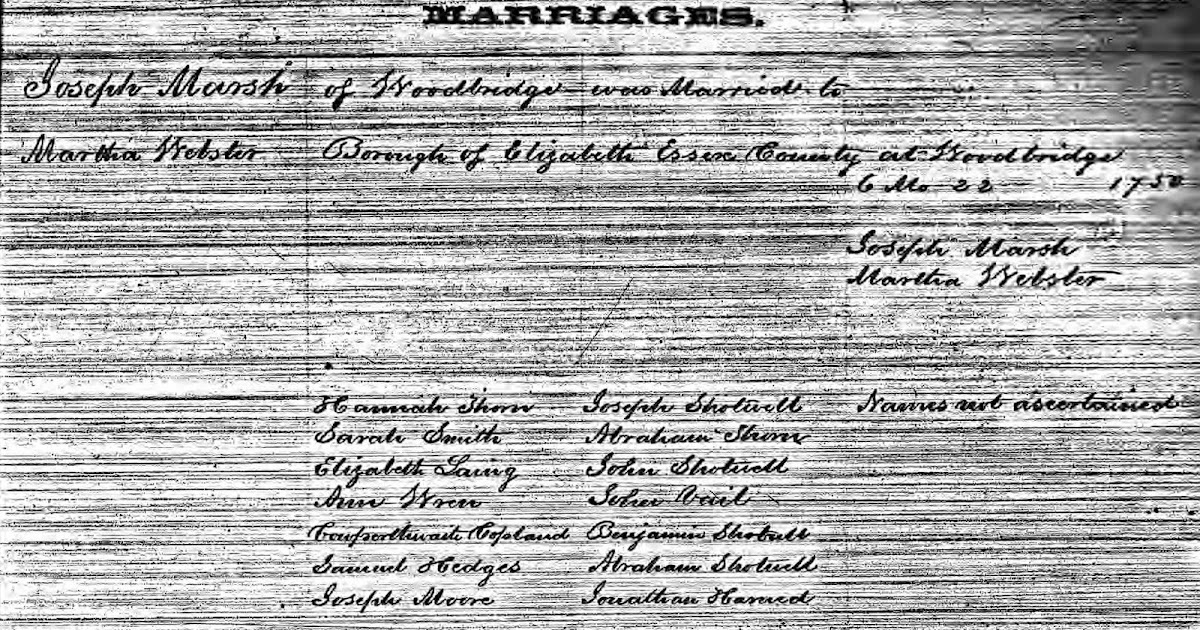 MARRIAGES.
Joseph Marsh of Woodbridge was Married to
Martha Webster Borough of Elizabeth Essex County at Woodbridge
6 Mo 22 1750
Joseph Marsh
Martha Webster
Hannah Thorn Joseph Shotwell Names not ascertained
Sarah Smith Abraham Thorn
Elizabeth Laing John Shotwell
Ann Wren John Vail
Cowperthwait Copland Benjamin Shotwell
Samuel Hedges Abraham Shotwell
Joseph Moore Jonathan Harned